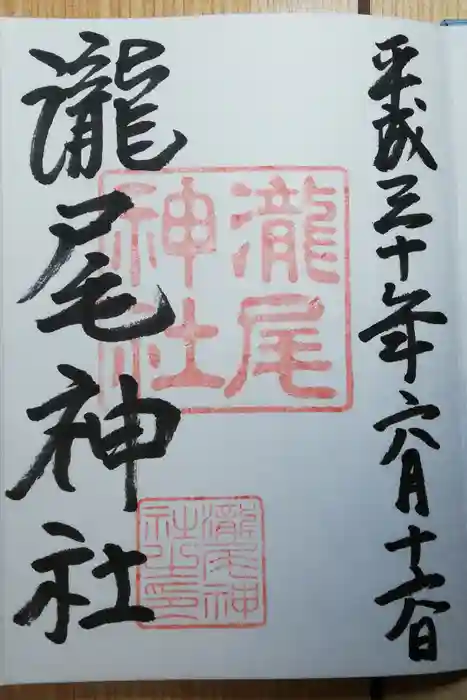 平成三十年六月十六日
瀧尾神社
瀧尾
神社
瀧尾神
社之印